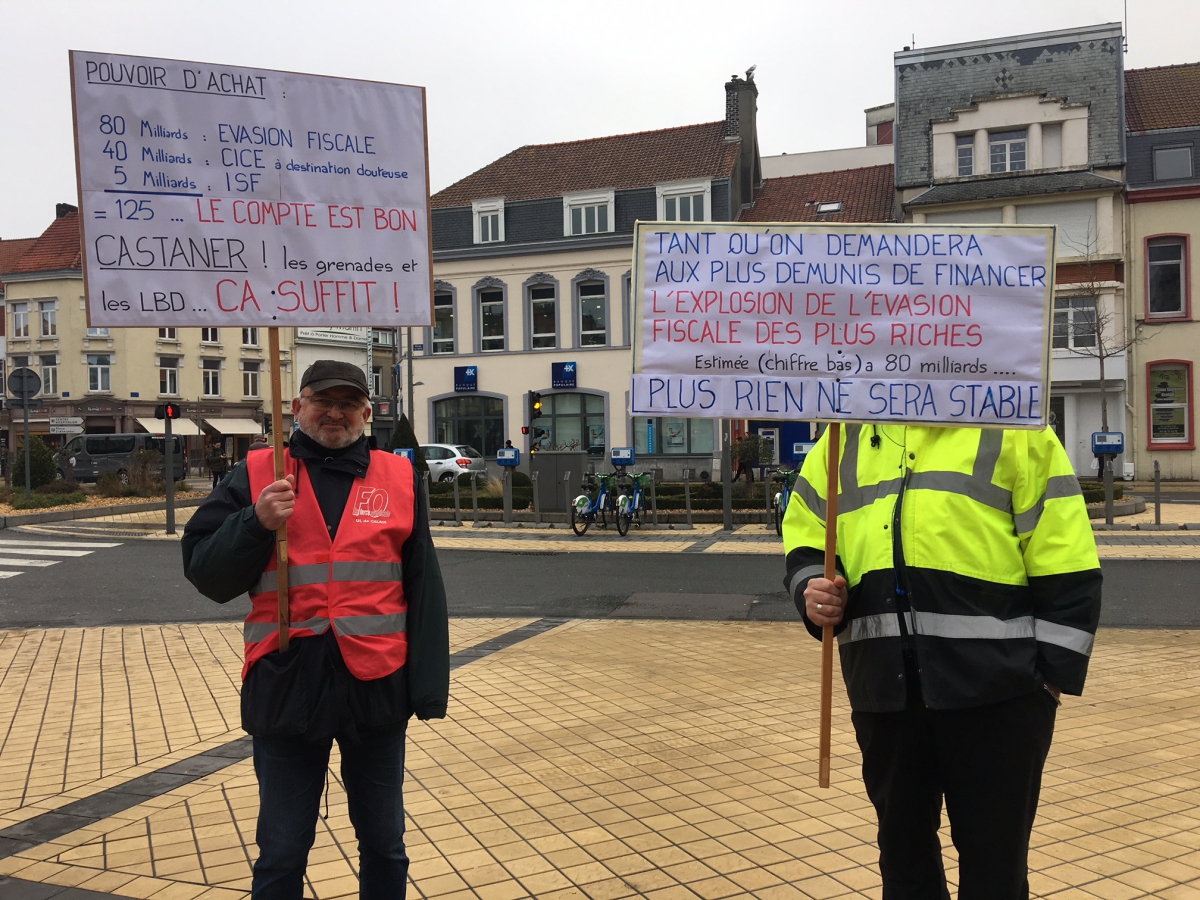 POUVOIR D'ACHAT :
80 Milliards : EVASION FISCALE
40 Milliards : CICE à destination douteuse
5 Milliards : ISF
= 125 ... LE COMPTE EST BON
CASTANER ! les grenades et
les LBD... CA SUFFIT !
TANT QU'ON DEMANDERA
AUX PLUS DEMUNIS DE FINANCER
L'EXPLOSION DE L'EVASION
FISCALE DES PLUS RICHES
Estimée (chiffre bas) à 80 milliards ....
PLUS RIEN NE SERA STABLE
BANQUE
POPULAIRE
FO